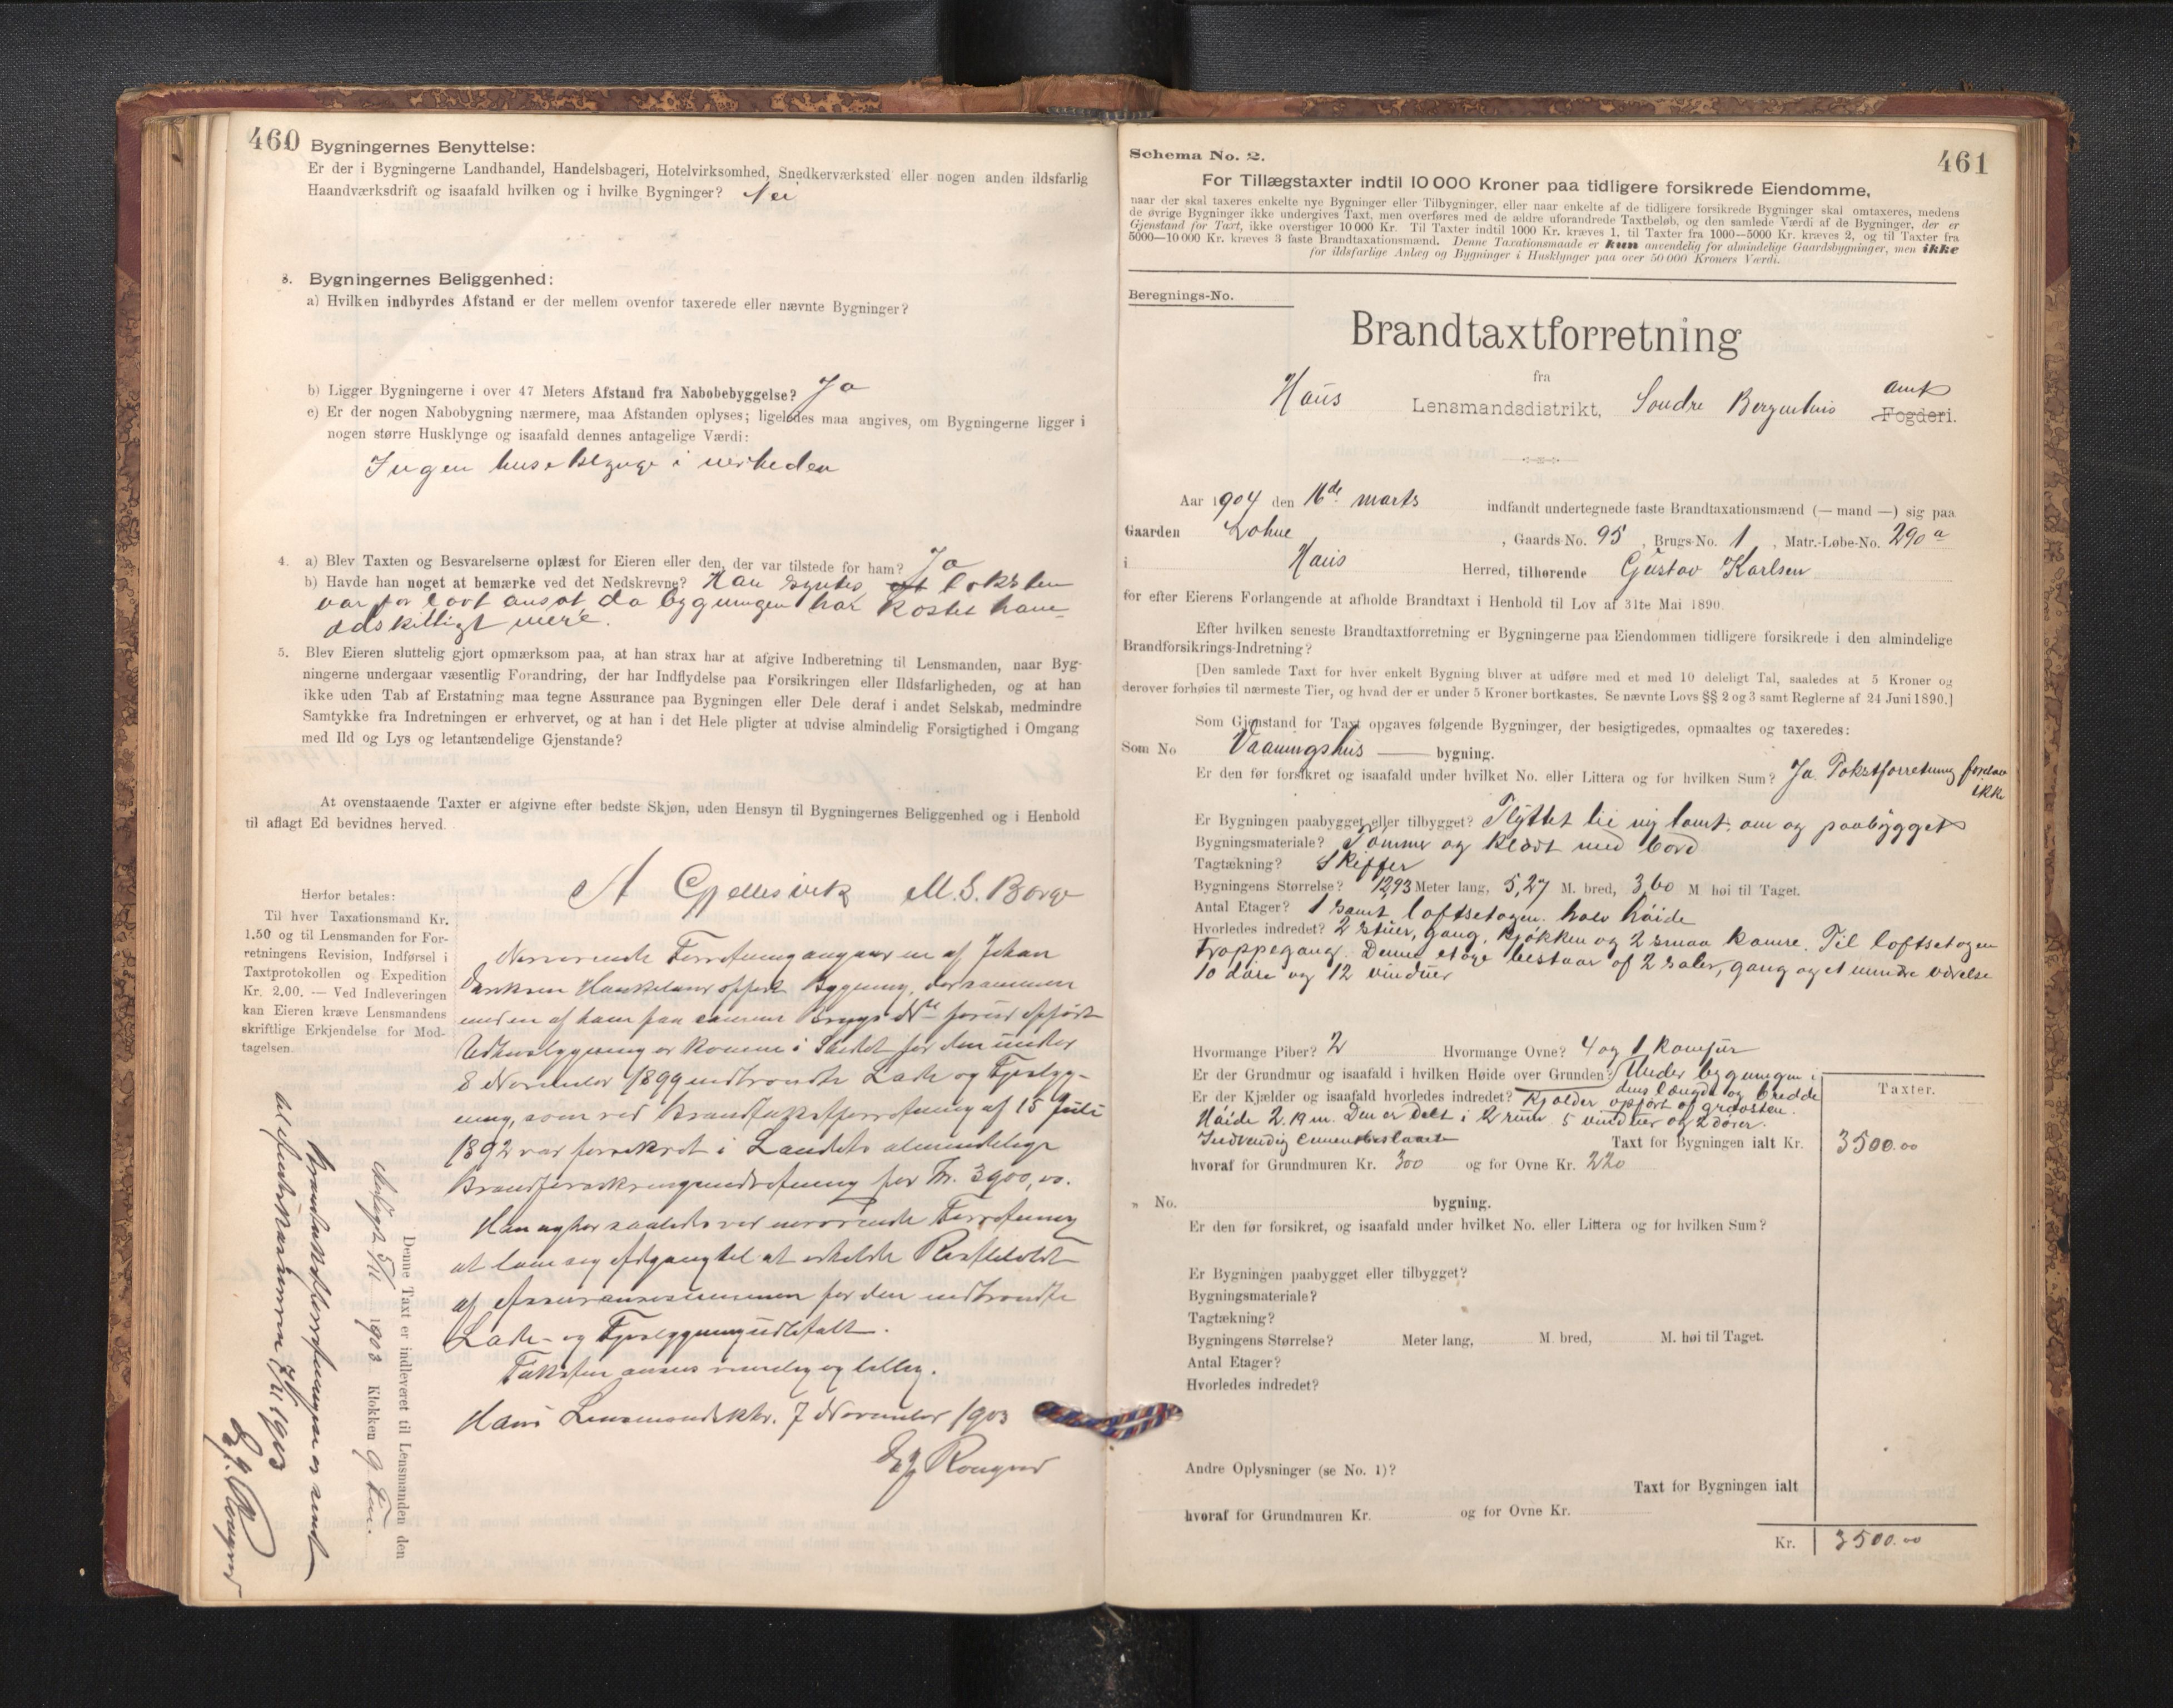 460
Bygningernes Benyttelse:
Er der i Bygningerne Landhandel, Handelsbageri, Hotelvirksomhed, Snedkerværksted eller nogen anden ildsfarlig
Haandværksdrift og isaafald hvilken og i hvilke Bygninger? Nei
3. Bygningernes Beliggenhed:
a) Hvilken indbyrdes Afstand er der mellem ovenfor taxerede eller nævnte Bygninger?
b) Ligger Bygningerne i over 47 Meters Afstand fra Nabobebyggelse? Ja
c) Er der nogen Nabobygning nærmere, maa Afstanden oplyses; ligeledes maa angives, om Bygningerne ligger i
nogen større Husklynge og isaafald dennes antagelige Værdi:
Ingen huse i nerheden
4. a) Blev Taxten og Besvarelserne oplæst for Eieren eller den, der var tilstede for ham? Ja
b) Havde han noget at bemærke ved det Nedskrevne? Han syntes at taksten
var for lavt ansat da bygningen har kostet ham
adskilligt mere.
5. Blev Eieren sluttelig gjort opmærksom paa, at han strax har at afgive Indberetning til Lensmanden, naar Byg-
ningerne undergaar væsentlig Forandring, der har Indflydelse paa Forsikringen eller Ildsfarligheden, og at han
ikke uden Tab af Erstatning maa tegne Assurance paa Bygningen eller Dele deraf i andet Selskab, medmindre
Samtykke fra Indretningen er erhvervet, og at han i det Hele pligter at udvise almindelig Forsigtighed i Omgang
med Ild og Lys og letantændelige Gjenstande?
At ovenstaaende Taxter er afgivne efter bedste Skjøn, uden Hensyn til Bygningernes Beliggenhed og i Henhold
til aflagt Ed bevidnes herved.
A Gjellesvik M. S. Borge
Herfor betales:
Til hver Taxationsmand Kr.
1.50 og til Lensmanden for For-
retningens Revision, Indførsel i
Taxtprotokollen og Expedition
Kr. 2.00. — Ved Indleveringen
kan Eieren kræve Lensmandens
skriftlige Erkjendelse for Mod-
tagelsen
Nærværende Forretning angaar en af Johan
Haukeland opført Bygning, der sammen
med en af ham paa samme Brugs No forud opført
Udhusbygning er kommen i Stedet for den under
8 November 1899 nedbrændte Lade og Fjøsbyg-
ning, som ved Brandtakstforretning af 15 Juli
1892 var forsikret i Landets almindelige
Brandforsikringsindretning for Kr. 3900,00.
Han agter saaledes ved nærværende Forretning
at lave sig Adgang til at erholde Restbeløbet
af Assurancesummen for den nedbrændte
Lade- og Fjøsbygning udbetalt.
Taksten ansees rimelig og billig.
Haus Lensmandsktr. 7 November 1903
Denne Taxt er indleveret til Lensmanden den
1903 Klokken 9 Fm.
Brandtakstforretningen er sendt
til 7/11 1903
461
Schema No. 2.
For Tillægstaxter indtil 10 000 Kroner paa tidligere forsikrede Eiendomme,
naar der skal taxeres enkelte nye Bygninger eller Tilbygninger, eller naar enkelte af de tidligere forsikrede Bygninger skal omtaxeres, medens
de øvrige Bygninger ikke undergives Taxt, men overføres med de ældre uforandrede Taxtbeløb, og den samlede Værdi af de Bygninger, der er
Gjenstand for Taxt, ikke overstiger 10 000 Kr. Til Taxter indtil 1000 Kr. kræves 1, til Taxter fra 1000—5000 Kr. kræves 2, og til Taxter fra
5000—10 000 Kr. kræves 3 faste Brandtaxationsmænd. Denne Taxationsmaade er kun anvendelig for almindelige Gaardsbygninger, men ikke
for ildsfarlige Anlæg og Bygninger i Husklynger paa over 50 000 Kroners Værdi.
Beregnings-No.
Brandtaxtforretning
fra
Haus Lensmandsdistrikt, Søndre Bergenhus amt Fogderi.
Aar 1904 den 16de marts indfandt undertegnede faste Brandtaxationsmænd (— mand —) sig paa
Gaarden Lohne, Gaards-No. 95, Brugs-No. 1, Matr.-Løbe-No. 290 a
i Haus Herred, tilhørende Gustav Karlsen
for efter Eierens Forlangende at afholde Brandtaxt i Henhold til Lov af 31te Mai 1890.
Efter hvilken seneste Brandtaxtforretning er Bygningerne paa Eiendommen tidligere forsikrede i den almindelige
Brandforsikrings-Indretning?
[Den samlede Taxt for hver enkelt Bygning bliver at udføre med et med 10 deleligt Tal, saaledes at 5 Kroner og
derover forhøies til nærmeste Tier, og hvad der er under 5 Kroner bortkastes. Se nævnte Lovs §§ 2 og 3 samt Reglerne af 24 Juni 1890.]
Som Gjenstand for Taxt opgaves følgende Bygninger, der besigtigedes, opmaaltes og taxeredes:
Som No Vaaningshus — bygning.
Er den før forsikret og isaafald under hvilket No. eller Littera og for hvilken Sum? Ja. Takstforretning
ikke
Er Bygningen paabygget eller tilbygget? Flyttet til ny tomt, om og paabygget
Bygningsmateriale? Tømmer og klædt med bord
Tagtækning? Skiffer
Bygningens Størrelse? 12,93 Meter lang, 5,27 M. bred, 3,60 M. høi til Taget.
Antal Etager? 1 samt loftsetagen halv høide
Hvorledes indredet? 2 stuer, gang, kjøkken og 2 smaa kamre. Til loftsetagen
trappegang. Denne etage bestaar af 2 saler, gang og et mindre værelse
10 døre og 12 vinduer
Hvormange Piber? 2 Hvormange Ovne? 4 og 1 komfur
Er der Grundmur og isaafald i hvilken Høide over Grunden? Under bygningen i
dens længde og bredde
Er der Kjælder og isaafald hvorledes indredet? Kjelder opført af graasten.
Høide 2.19 m. Den er delt i 2 rum 5 vinduer og 2 dører.
Indvendig
Taxter.
Taxt for Bygningen ialt Kr. 3500.00
hvoraf for Grundmuren Kr. 300 og for Ovne Kr. 220
„ No. bygning.
Er den før forsikret, og isaafald under hvilket No. eller Littera og for hvilken Sum?
Er Bygningen paabygget eller tilbygget?
Bygningsmateriale?
Tagtækning?
Bygningens Størrelse? Meter lang, M. bred, M. høi til Taget.
Antal Etager?
Hvorledes indredet?
Andre Oplysninger (se No. 1)?
Taxt for Bygningen ialt
hvoraf for Grundmuren Kr. og for Ovne Kr.
Kr. 3500.00